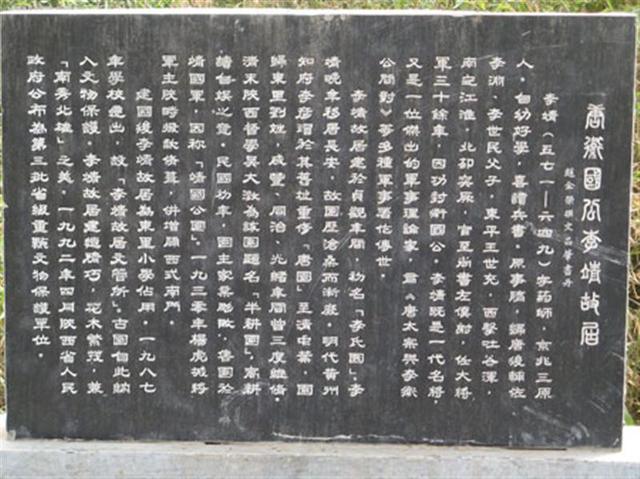 唐衛國公李靖故居
趙金榮撰文 呂肇書丹
李靖（五七一—六四九）字葯師，京兆三原
人。自幼好學，喜讀兵書，原事隋，歸唐後輔佐
李淵、李世民父子，東平王世充，西擊吐谷渾，
南定江淮，北却突厥，官至尚書左僕射，任大將
軍三十餘年，因功封衛國公。李靖既是一代名將，
又是一位傑出的軍事理論家，有《唐太宗與李衛
公問對》等多種軍事著作傳世。
李靖故居建於貞觀年間，幼名「李氏園」李
靖晚年移居長安，故園歷滄桑而漸廢。明代黃州
知府李彦瑁於其舊址重修「唐園」至清中葉，園
歸東里劉姓，咸豐、同治、光緒年間曾三度維修。
清末陝西督學吳大澂為該園題名「半耕園」寓耕
讀自娛之意。民國初年，園主家業彫敗，售園於
靖國軍，因称「靖國公園」。一九三零年楊虎城將
軍主陝時撥款修葺，併增闢西式南門。
建國後李靖故居為東里小學佔用。一九八七
年學校遷出，設「李靖故居文管所」。古園自此納
入文物保護。李靖故居建造精巧，花木繁茂，兼
「南秀北雄」之美，一九九二年四月陝西省人民
政府公布為第三批省級重點文物保護單位。